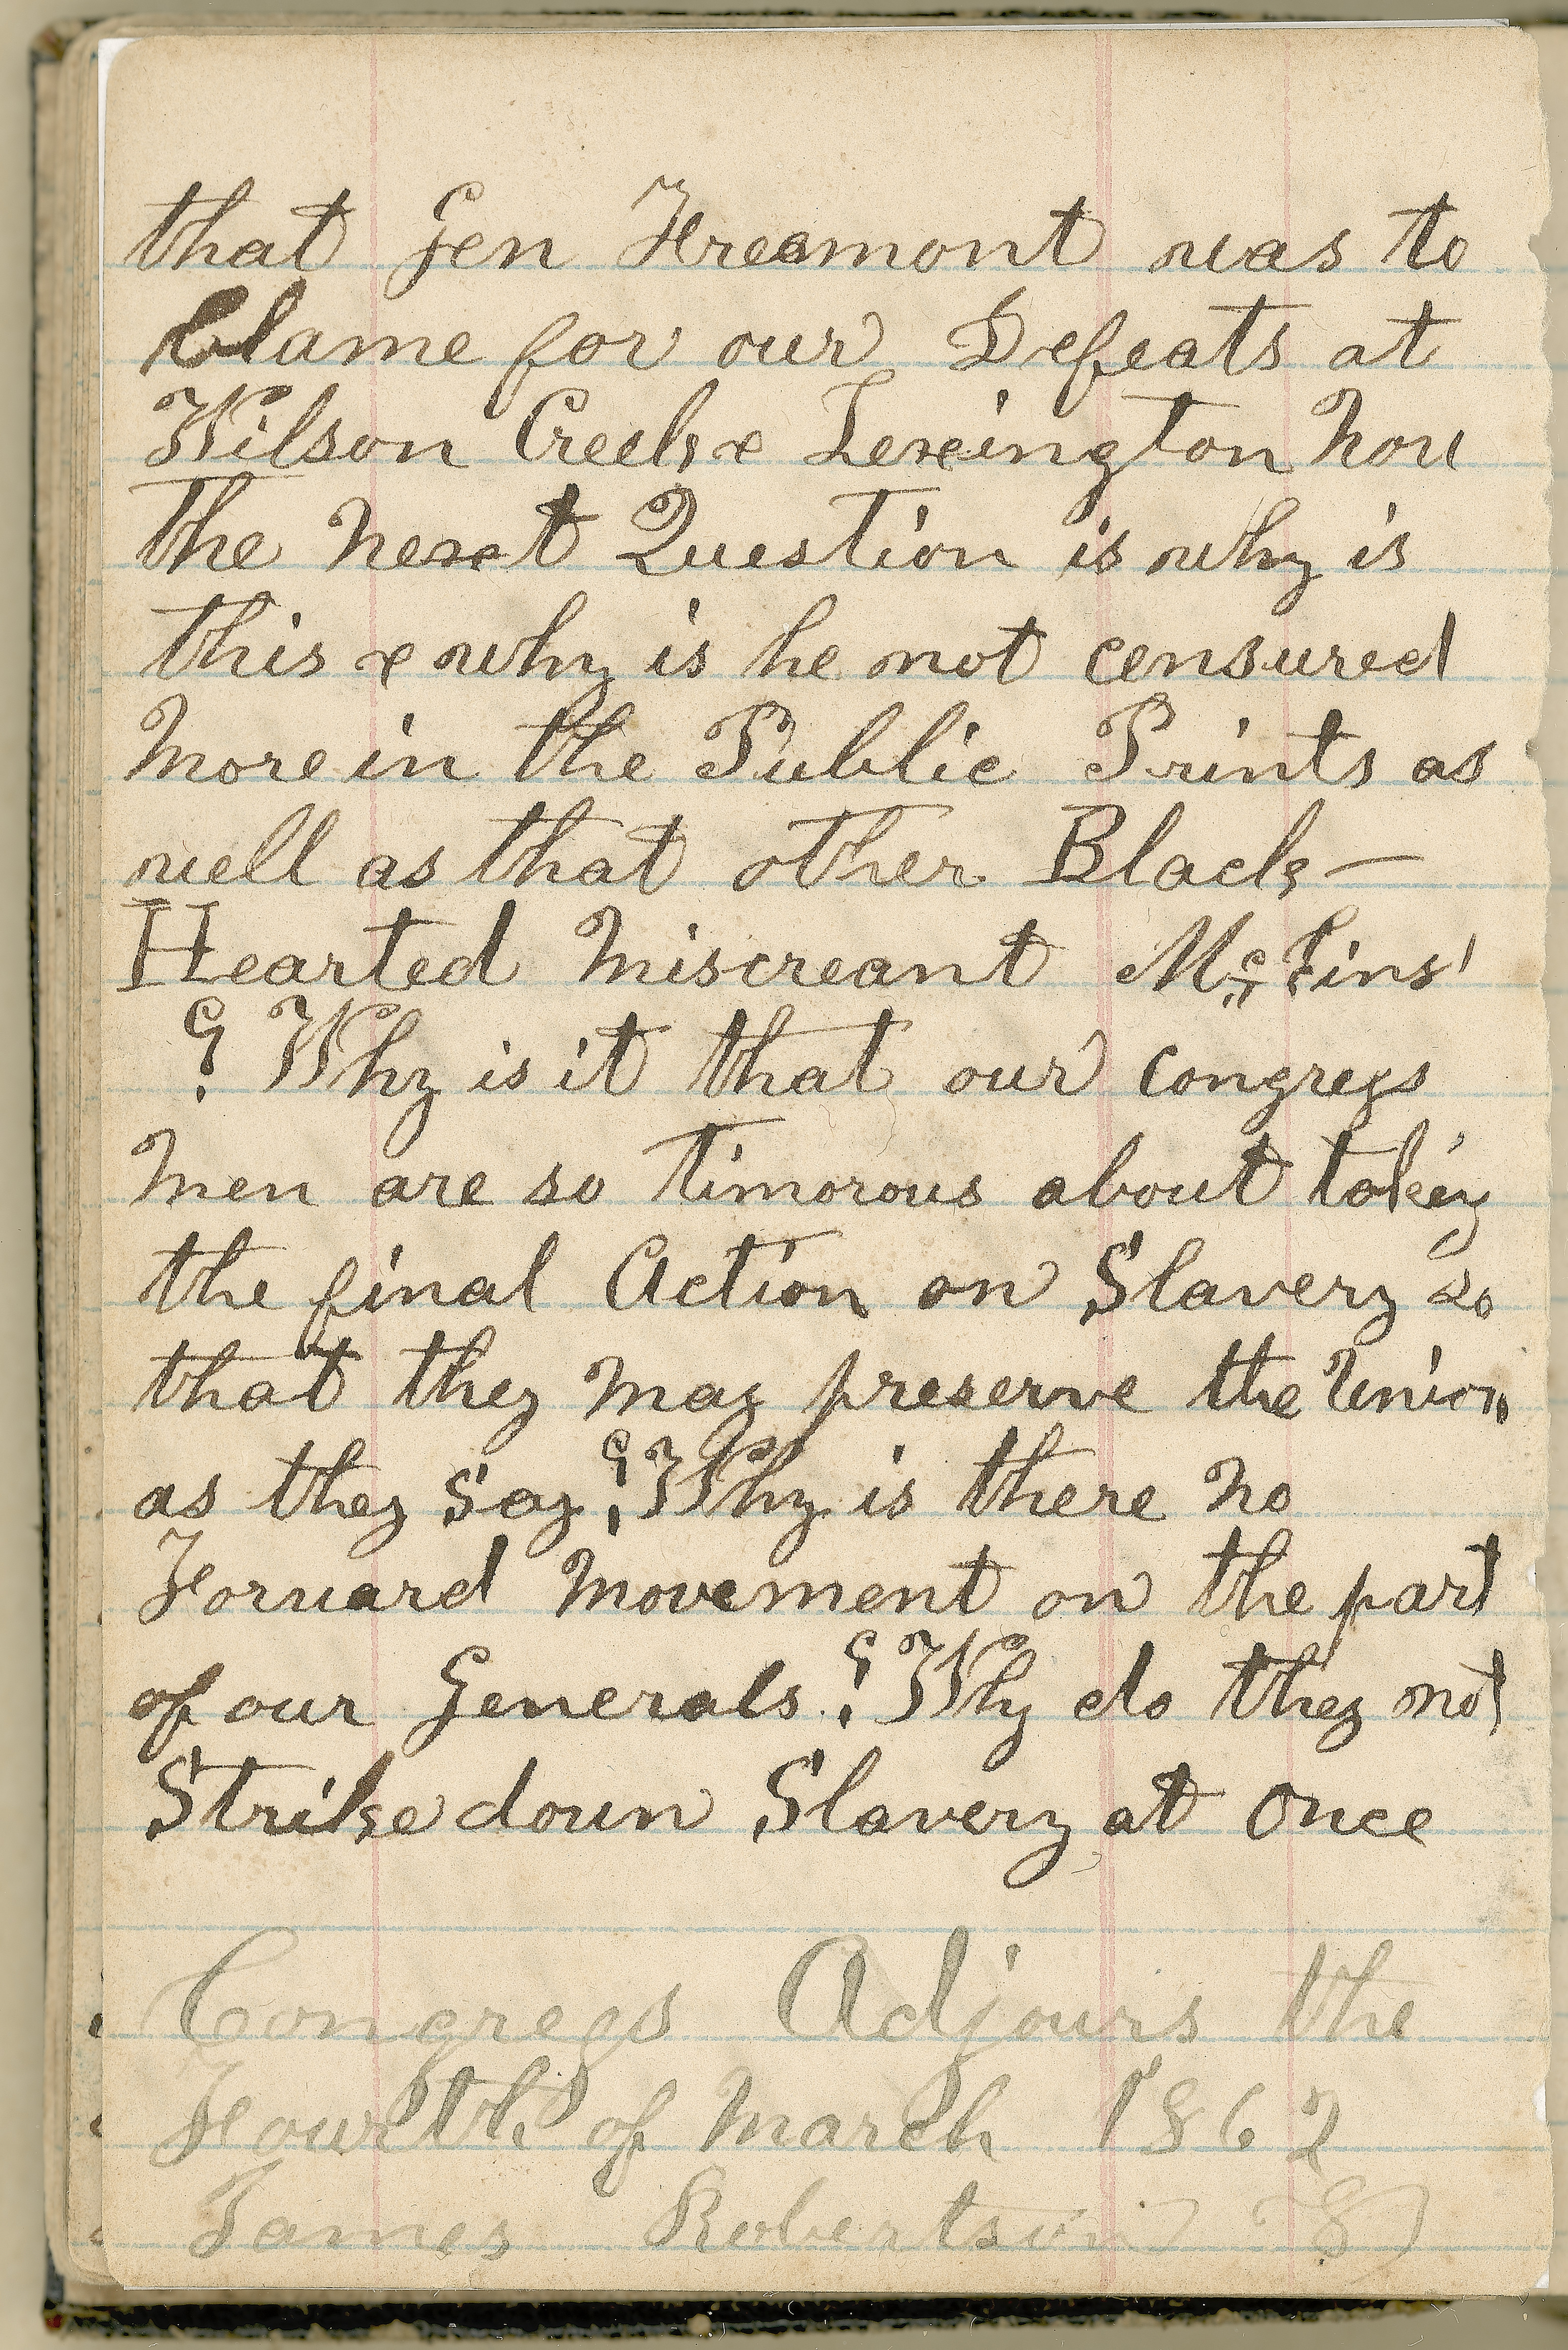 that Gen Freemont was to
Blame for our Defeats at
Wilson Creek & Lexington Now
the Next Question is why is
this & why is he not censured
More in the Public Prints as
well as that other Black-
Hearted Miscreant
? Why is it that our congress
Men are so timorous about taking
the final Action on Slavery so
that they may preserve the Union
as they Say ? Why is there No
Forward Movement on the part
of our Generals ? Why do they not
Strike down Slavery at Once
Congress Adjours the
Fourth of March 1862
James Robertson